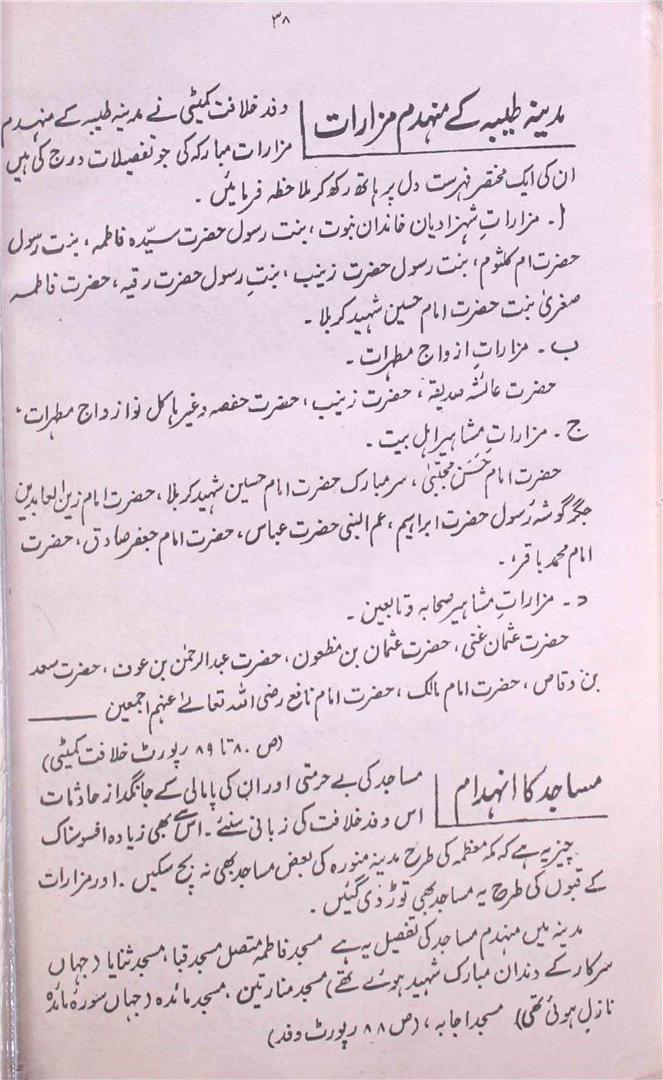 ۳۸
مدینہ طیبہ کے منہدم مزارات
وفد خلافت کمیٹی نے مدینہ طیبہ کے منہدم
مزارات مبارکہ کی جو تفصیلات درج کی ہیں
ان کی ایک مختصر فہرست دل پر ہاتھ رکھ کر ملاحظہ فرمائیں۔
ا۔ مزاراتِ شہزادیان خاندان نبوت، بنت رسول حضرت سیّدہ فاطمہ، بنت رسول
حضرت ام کلثوم، بنت رسول حضرت زینب، بنتِ رسول حضرت رقیہ، حضرت فاطمہ
صغریٰ بنت حضرت امام حسین شہید کربلا۔
ب۔ مزاراتِ ازواج مطہرات۔
حضرت عائشہ صدیقہ، حضرت زینب، حضرت حفصہ وغیرہا کل نو ازواج مطہرات،
ج۔ مزاراتِ مشاہیر اہل بیت۔
حضرت امام حَسَن مجتبیٰ، سر مبارک حضرت امام حسین شہید کربلا، حضرت امام زین العابدین
جگر گوشہ رسول حضرت ابراہیم، عم النبی حضرت عباس، حضرت امام جعفر صادق، حضرت
امام محمد باقر،۔
د۔ مزاراتِ مشاہیر صحابہ و تابعین۔
حضرت عثمان غنی، حضرت عثمان بن مظعون، حضرت عبدالرحمٰن بن عوف، حضرت سعد
بن وقاص، حضرت امام مالک، حضرت امام نافع رضی اللہ تعالےٰ عنہم اجمعین ــــــ
(ص ۸۰ تا ۸۹ رپورٹ خلافت کمیٹی)
مساجد کا انہدام
مساجد کی بے حرمتی اور ان کی پامالی کے جانگداز حادثات
اس وفد خلافت کی زبانی سنئے۔ اس سے بھی زیادہ افسوسناک
چیز یہ ہے کہ مکہ معظمہ کی طرح مدینہ منورہ کی بعض مساجد بھی نہ بچ سکیں۔ اور مزارات
کے قبوں کی طرح یہ مساجد بھی توڑ دی گئیں۔
مدینہ میں منہدم مساجد کی تفصیل یہ ہے مسجد فاطمہ متصل مسجد قبا، مسجد ثنایا (جہاں
سرکار کے دندان مبارک شہید ہوئے تھے) مسجد منارتین، مسجد مائدہ (جہاں سورہ مائدہ
نازل ہوئی تھی) مسجد اجابہ، (ص ۸۸ رپورٹ وفد)